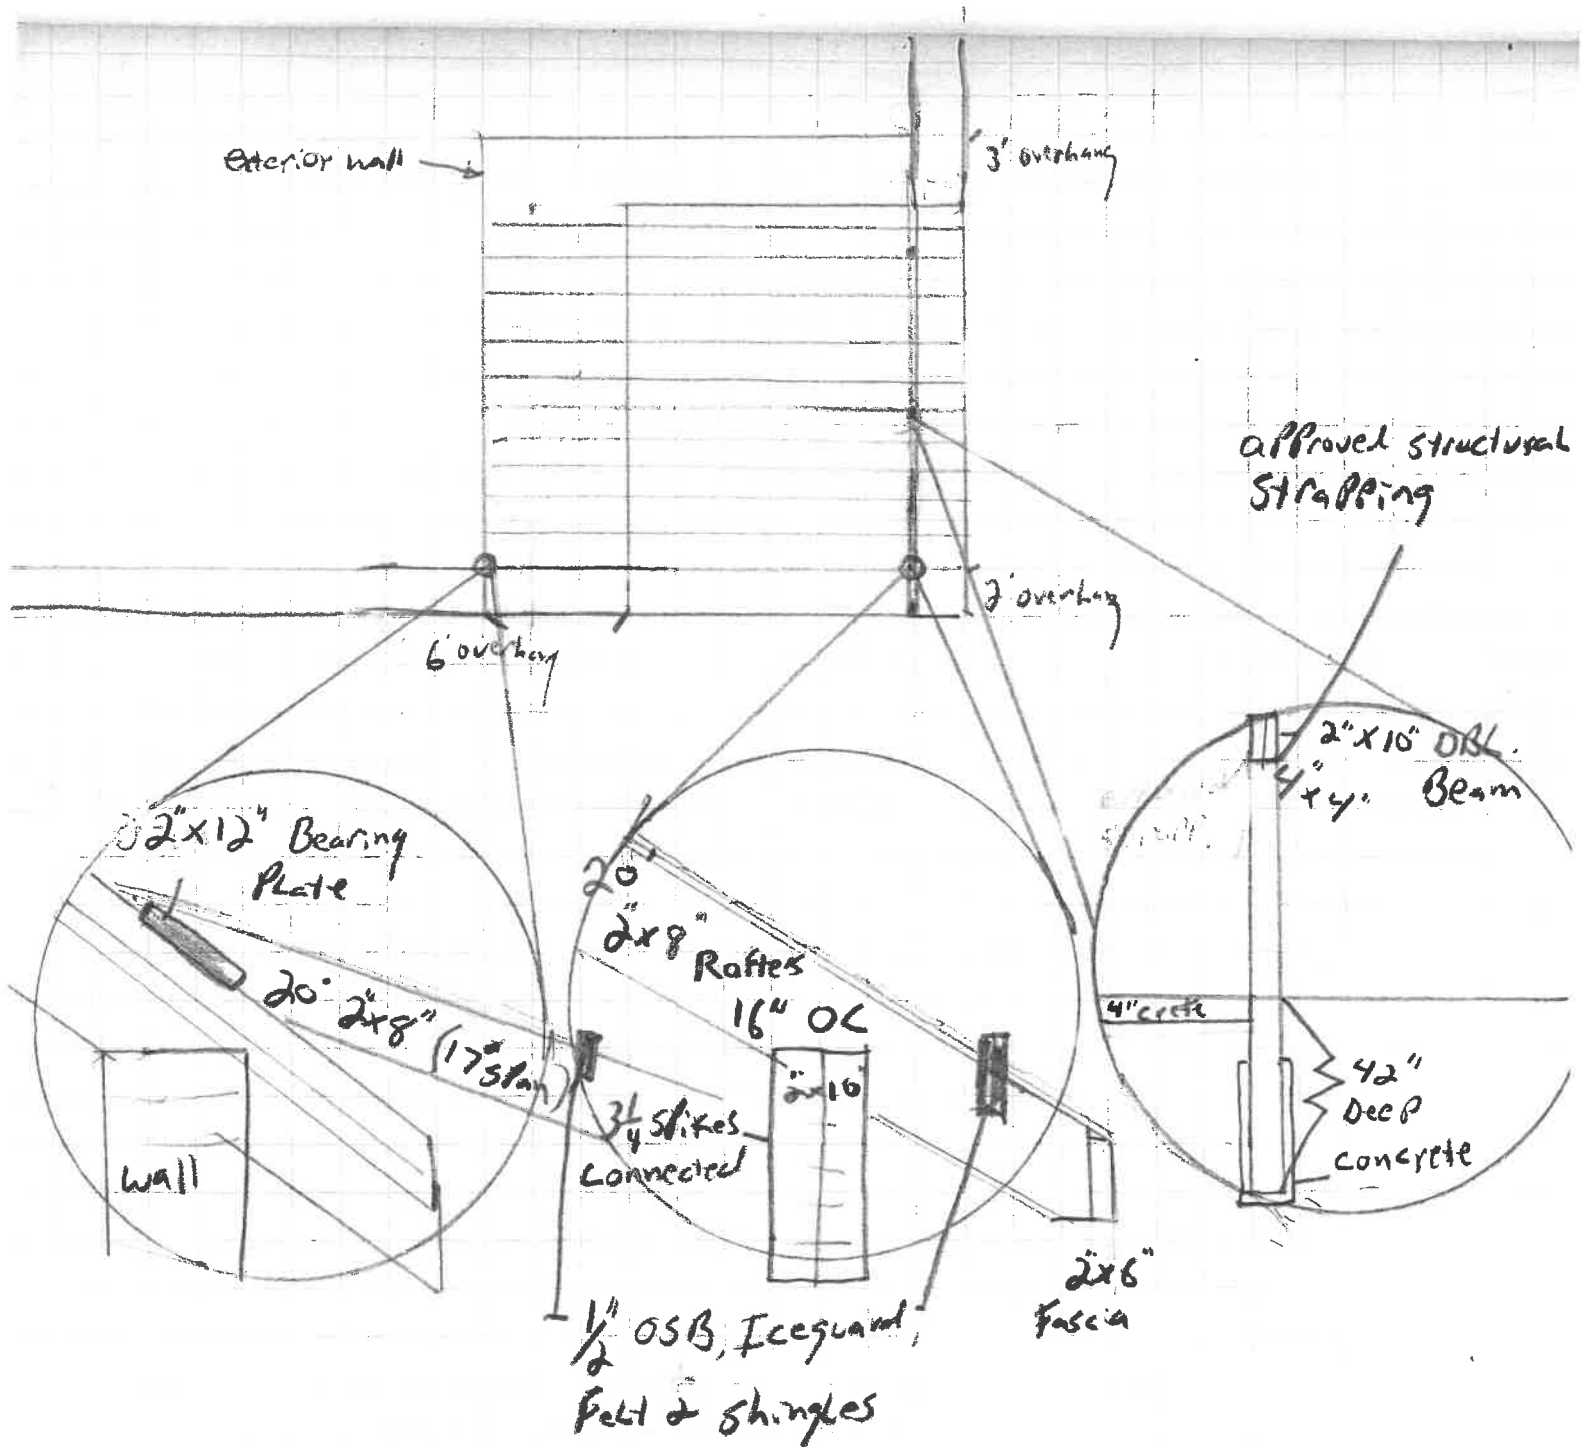 exterior wall
3' overhang
approved structural
strapping
2' overhang
6' overhang
2"x10" DBL.
Beam
4"
x4"
2"x12" Bearing
Plate
20° 2"x8" (17° span)
wall
20
2"x8"
Rafters
16" OC
2x10
3 1/4 spikes
connected
4" crete
42"
Deep
concrete
2"x6"
Fascia
1/2" OSB, Iceguard,
Felt & shingles